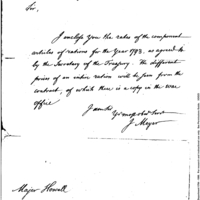 Sir,
I enclose you the rates of the component
articles of rations for the Year 1793, as agreed to
by the Secretary of the Treasury. The different
prices of an entire ration will be seen from the
contract, of which there is a copy in the war
Office
I am &c
J Meyer
Major Howell